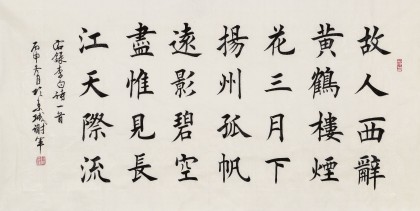 故人西辭
黃鶴樓煙
花三月下
揚州孤帆
遠影碧空
盡惟見長
江天際流
右錄李白詩一首
丙申冬月於京城謝軍